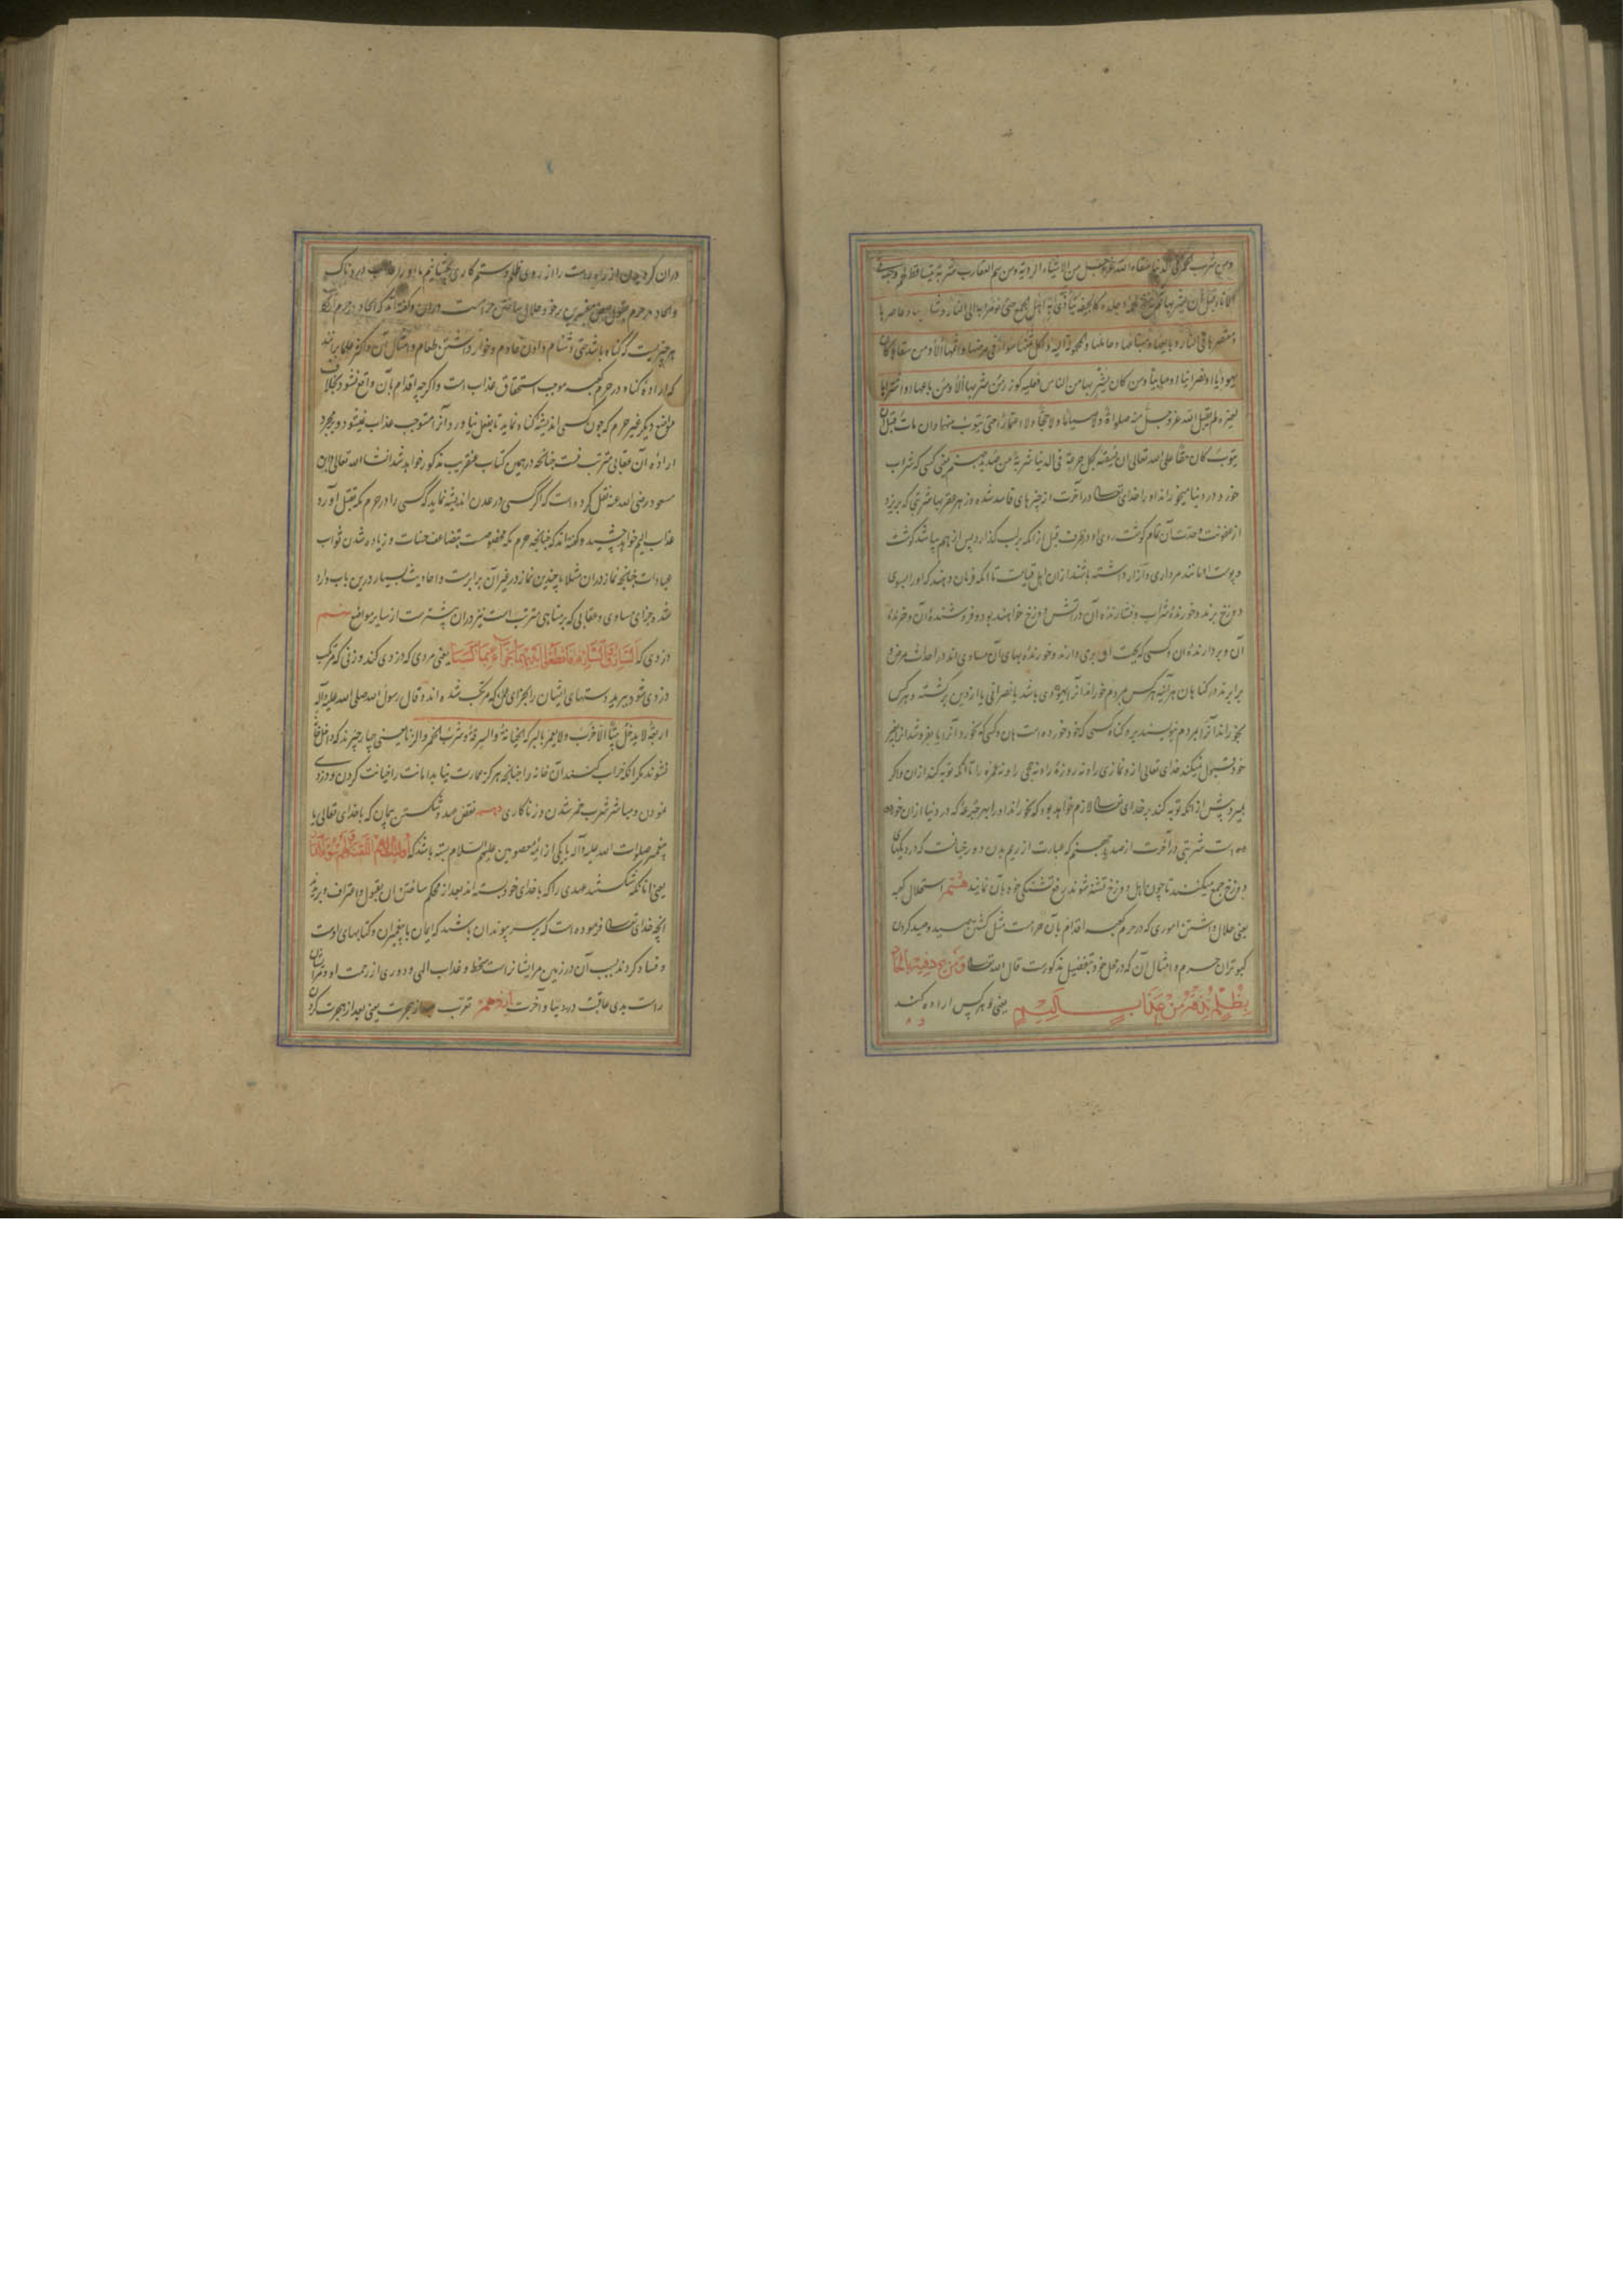 ومن شرب الخمر فی الدنیا سقاه الله عز وجل من الاشیاء الردیة ومن سم العقارب شربة یتساقط لحم وجهه فی
الاناء قبل ان یشربها لحمه وجلده کالجیفة یتأذی به اهل الجمع حتی یؤمر به الی النار وشاربها وعاصرها
ومعتصرها فی النار وبایعها ومبتاعها وحاملها والمحمولة الیه وآکل ثمنها سواء فی عرضها واثمها الا ومن سقاها کان
یهودیا او نصرانیا او صابیا ومن کان یشربها من الناس فعلیه کوزر من شربها الا ومن باعها او اشتراها
لغیره لم یقبل الله عز وجل منه صلواة ولا صیاما ولا حجا ولا اعتمارا حتی یتوب منها وان مات قبل ان
یتوب کان حقا علی الله تعالی ان یسقیه بکل جرعة فی الدنیا شربة من صدید جهنم یعنی کسی که شراب
خورد در دنیا میخوراند او را خدای تعالی در آخرت از چیزهای فاسد شده وزهر عقربها شربتی که بریزد
از عفونت وحدت آن تمام کوشت روی او در ظرف قبل از انکه بر لب کذارد پس از هم بپاشد کوشت
وپوست او مانند مرداری و آزار داشته باشند از ان اهل قیامت تا انکه فرمان دهند که او را بسوی
دوزخ برند وخورندهٔ شراب وفشارنده آن در آتش دوزخ خواهند بود وفروشندهٔ آن وخرندهٔ
آن وبردارنده ان وکسی که بجهت او بری دارند وخورندهٔ بهای آن مساوی اند در احداث مرض و
برابرند در کناه ان هر آینه هرکس بمردم خوراند آنرا یهودی باشد یا نصرانی یا از دین برکشته وهرکس
بخوراند آنرا بمردم بنویسند برو کناه کسی که خود خورده است ان وکسی که بخرد آنرا یا بفروشد از بهر غیر
خود قبول نمیکند خدای تعالی ازو نمازی را ونه روزهٔ را ونه حجی را ونه عمره را تا انکه توبه کند از ان واکر
بمیرد پیش از انکه توبه کند بر خدای تعالی لازم خواهد بود که بخوراند او را بهر جرعهٔ که در دنیا از ان خورده
است شربتی در آخرت از صدید جهنم که عبارت از ریم بدن دوزخیانست که در دیکهای
دوزخ جمع میکنند تا چون اهل دوزخ تشنه شوند برفع تشنکی خود بآن نمایند هشتم استحلال کعبه
یعنی حلال داشتن اموری که در حرم کعبه اقدام بآن حرامست مثل کشتن صید وصید کردن
کبوتران حرم وامثال آن که در محل خود بتفصیل مذکورست قال الله تعالی ومن یرد فیه بالحاد
بظلم نذقه من عذاب الیم یعنی وهرکس اراده کند
در ان کردیدن از راه راست را از روی ظلم وستمکاری بچشانیم ما او را عذاب دردناک
والحاد در حرم بقول بعض مفسرین بر خود حلال ساختن حرامست در ان وکفته اند که الحاد در حرم ارتکاب
هر چیزیست که کناه باشد حتی دشنام دادن خادم وخوار داشتن طعام وامثال آن واکثر علما برانند
که ارادهٔ کناه در حرم کعبه موجب استحقاق عذاب است واکرچه اقدام بآن واقع نشود بخلاف
مواضع دیکر غیر حرم که چون کسی اندیشهٔ کناه نماید تا بفعل نیاورد آنرا مستوجب عذاب نمیشود وبمجرد
ارادهٔ آن عقابی مترتب نیست چنانچه در همین کتاب عنقریب مذکور خواهد شد انشاء الله تعالی وابن
مسعود رضی الله عنه نقل کرده است که اکر کسی در عدن اندیشه نماید که کسی را در حرم مکه بقتل آورد
عذاب الیم خواهد چشید وکفته اند که چنانچه حرم مکه مخصوصست بتضاعف حسنات وزیاده شدن ثواب
عبادات چنانچه نماز در ان مثلا با چندین نماز در غیر آن برابرست واحادیث بسیار درین باب وارد
شده وجزای مساوی وعقابی که بر مناهی مترتب است نیز در ان بیشترست از سایر مواضع نهم
دزدی که السارق والسارقة فاقطعوا ایدیهما جزاء بما کسبا یعنی مردی که دزدی کند وزنی که مرتکب
دزدی شود ببرید دستهای ایشان را بجزای عملی که مرتکب شده اند وقال رسول الله صلی الله علیه وآله
اربعة لا یدخل بیتا الا خرب ولا یعمر بالبرکة الخیانة والسرقة وشرب الخمر والزنا یعنی چهار چیزند که داخل خانهٔ
نشوند مکر انکه خراب کنند آن خانه را چنانچه هرکز بعمارت نیاید امانت را خیانت کردن ودزدی
نمودن ومباشر شرب خمر شدن وزناکاری دهم نقض عهد وشکستن پیمان که با خدای تعالی یا
پیغمبر صلوات الله علیه وآله یا یکی از ائمهٔ معصومین علیهم السلام بسته باشد که اولئک لهم اللعنة ولهم سوء الدار
یعنی آنانکه شکستند عهدی را که با خدای خود بسته اند بعد از محکم ساختن ان بقبول واعتراف وبریدند
انچه خدای تعالی فرموده است که بر سر پیوند ان باشند که ایمان با پیغمبران وکتابهای اوست
وفساد کردند بسبب آن در زمین مر ایشانراست سخط وغذاب الهی ودوری از رحمت او ومر ایشان
راست بدی عاقبت در دنیا وآخرت یازدهم تعرب بعد از هجرت یعنی بعد از هجرت کردن